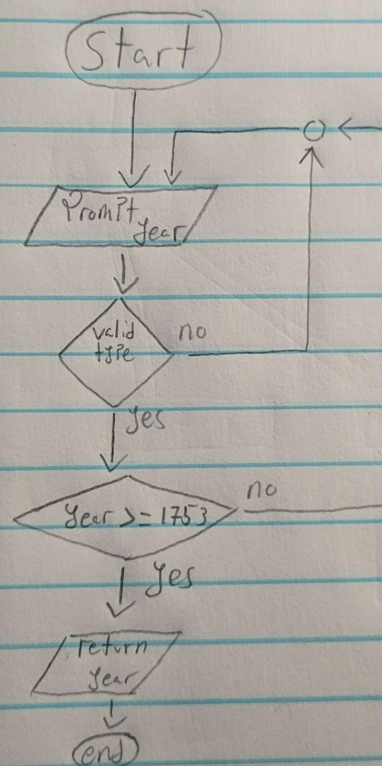 Start
Prompt
year
valid
type
no
yes
year >= 1753
no
yes
return
year
end